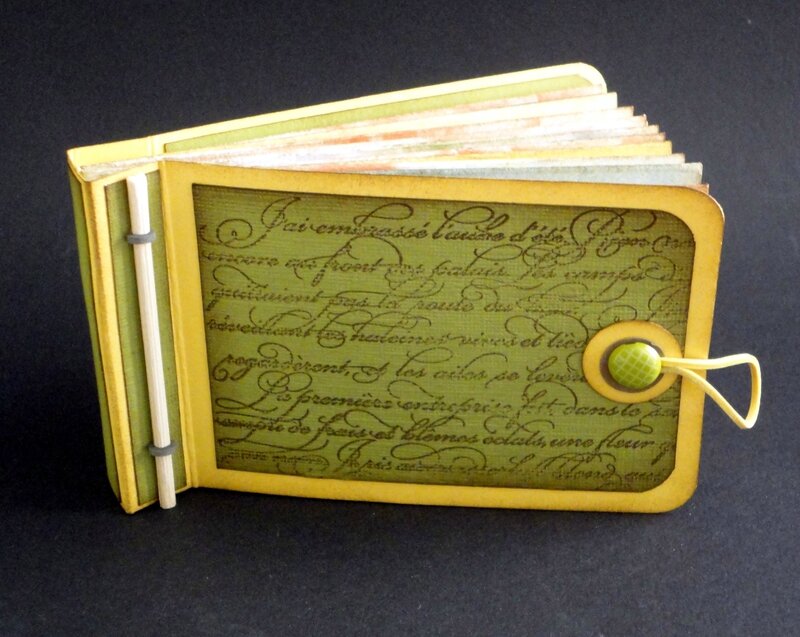 J'ai embrassé l'aube d'été.
encore au front des palais. Les camps d
quittaient pas la route du
réveillant les haleines vives et tiède
regardèrent, et les ailes se levèrent
La première entreprise fut, dans le se
empli de frais et blêmes éclats, une fleur q
Je ris au